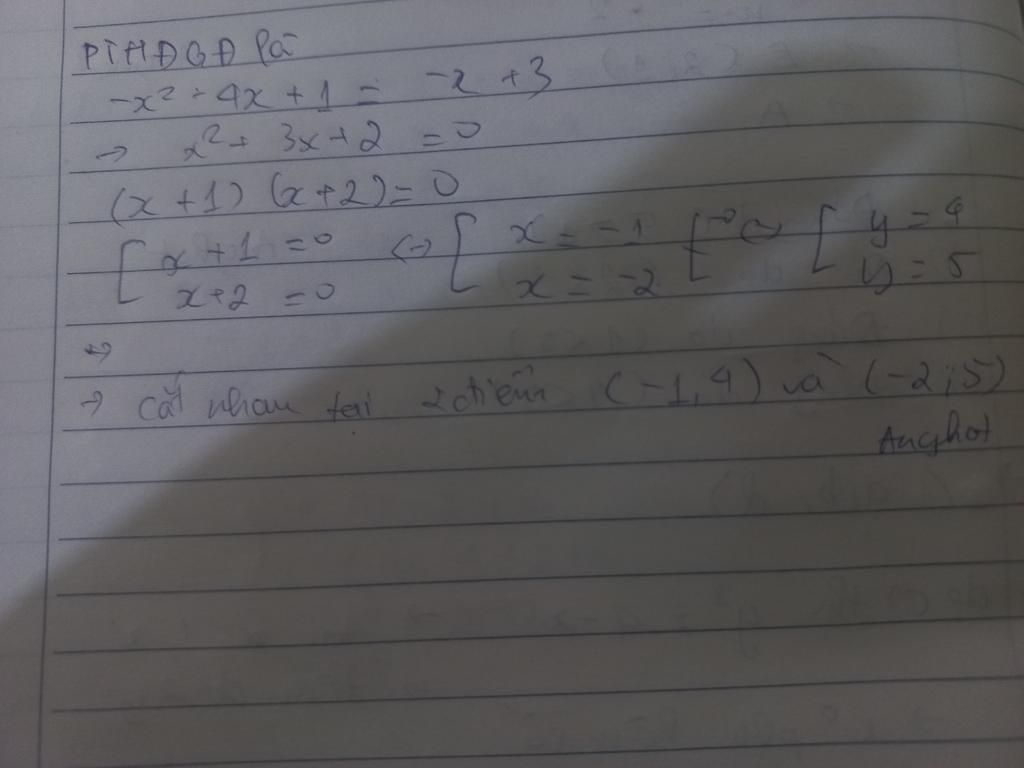 PTHĐGĐ là
-x² - 4x + 1 = -x + 3
→ x² + 3x + 2 = 0
(x + 1) (x + 2) = 0
[ x + 1 = 0 ↔ [ x = -1 [ ↔ [ y = 4
x + 2 = 0 x = -2 y = 5
↔
→ cắt nhau tại 2 điểm (-1, 4) và (-2; 5)